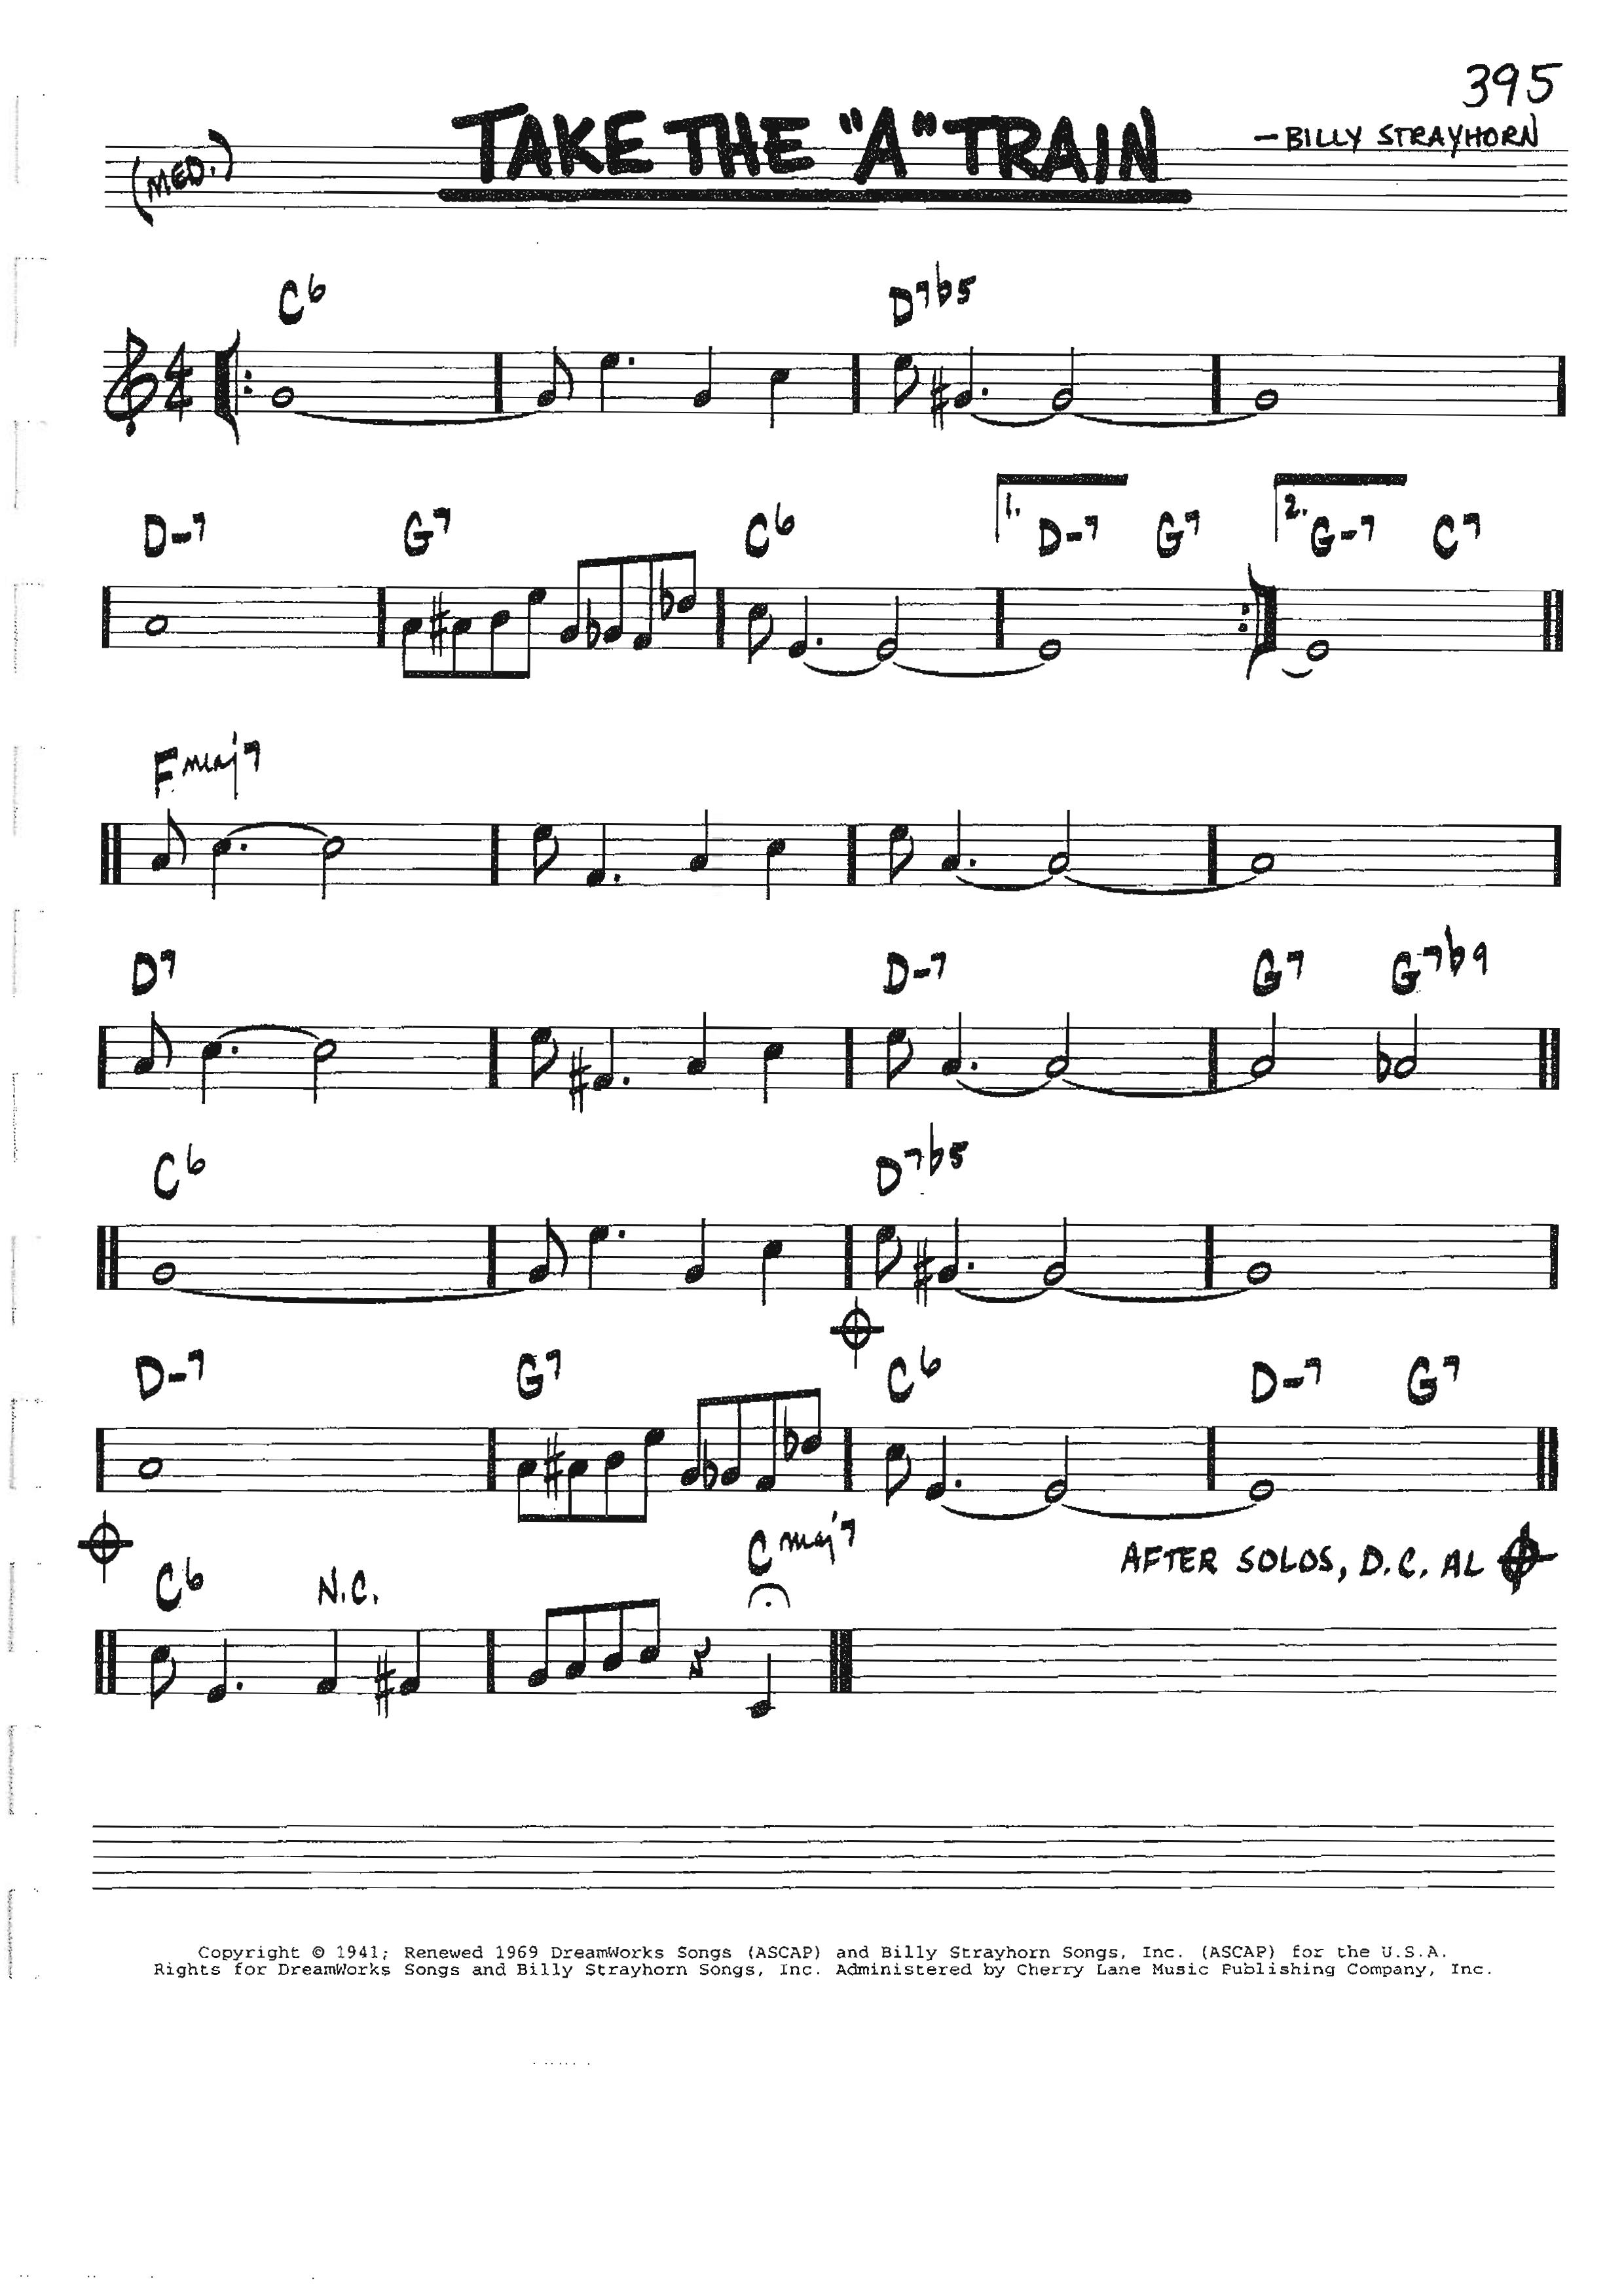 395
TAKE THE "A" TRAIN
—BILLY STRAYHORN
(MED.)
C6 D7♭5
4/4
1. 2.
D-7 G7 C6 D-7 G7 G-7 C7
Fmaj7
D7 D-7 G7 G7♭9
C6 D7♭5
D-7 G7 C6 D-7 G7
AFTER SOLOS, D.C. AL 𝄌
C6 N.C. Cmaj7
Copyright © 1941; Renewed 1969 DreamWorks Songs (ASCAP) and Billy Strayhorn Songs, Inc. (ASCAP) for the U.S.A.
Rights for DreamWorks Songs and Billy Strayhorn Songs, Inc. Administered by Cherry Lane Music Publishing Company, Inc.